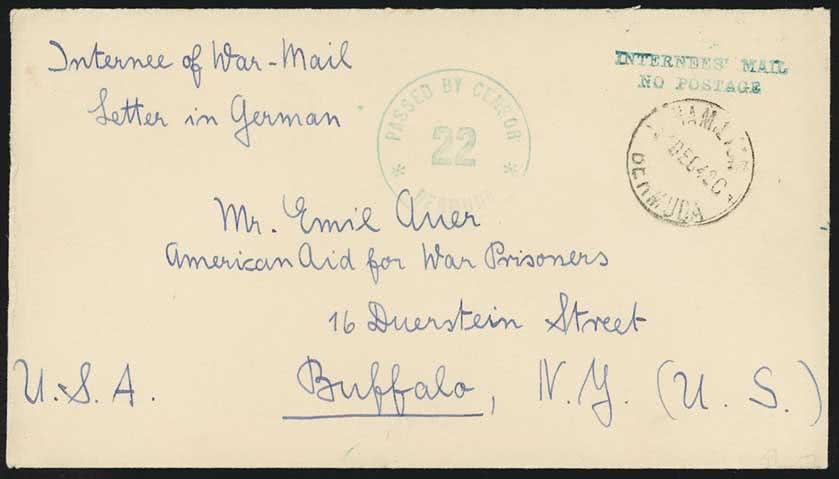 Internee of War-Mail
Letter in German
INTERNEES' MAIL
NO POSTAGE
PASSED BY CENSOR
22
BERMUDA
HAMILTON
DEC 42
BERMUDA
Mr. Emil Auer
American Aid for War Prisoners
16 Duerstein Street
U.S.A. Buffalo, N.Y. (U.S.)